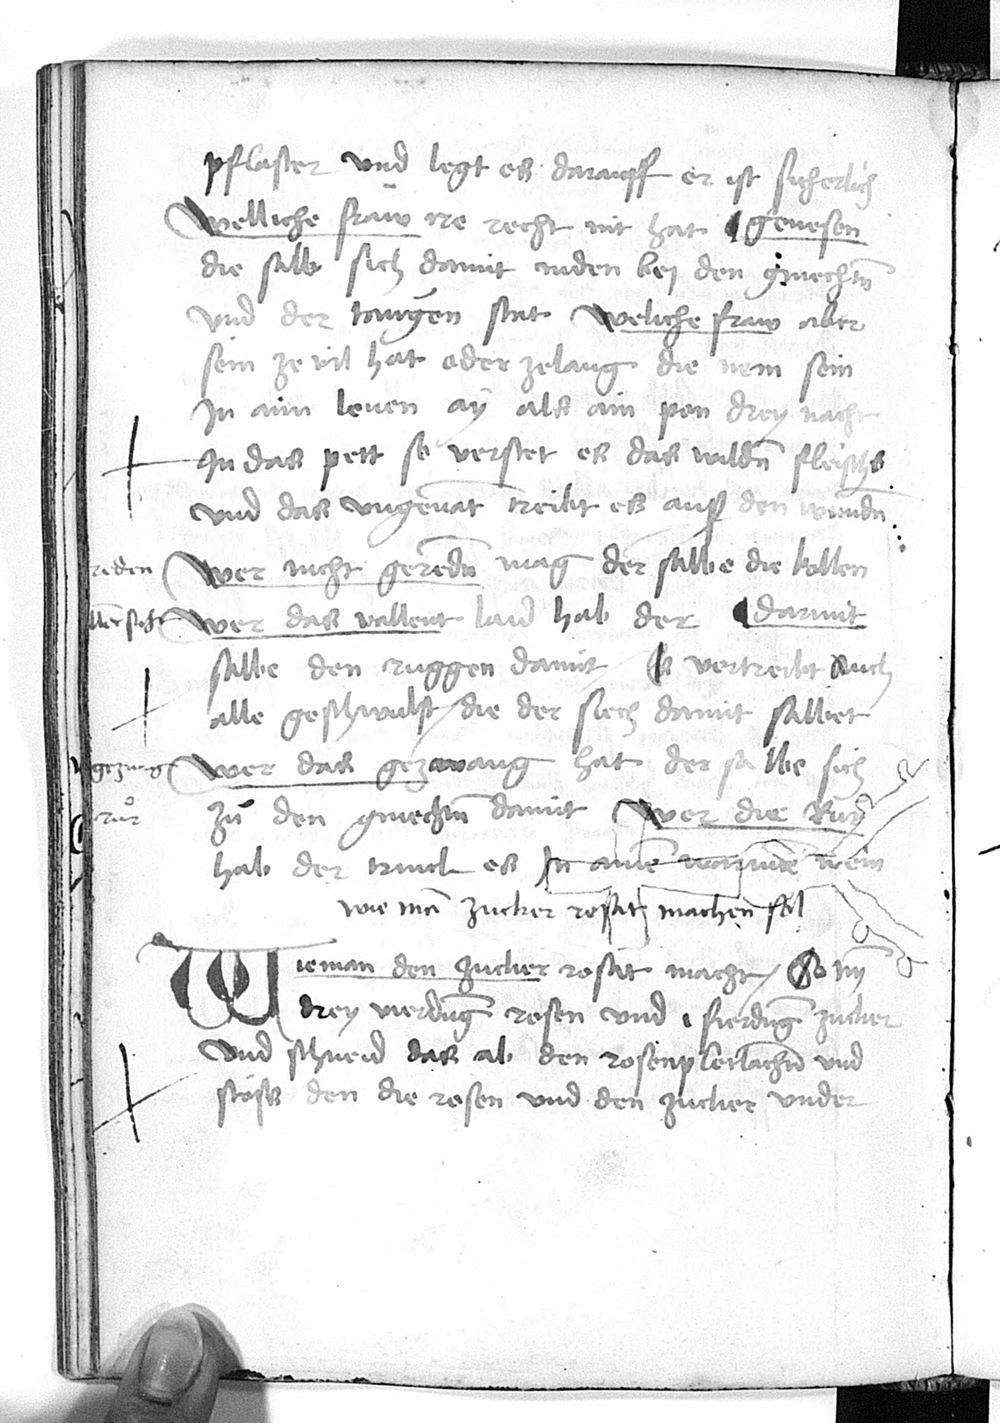 pflaster vnd legt es darauff er ist sicherlich
Welliche fraw ire recht nit hat genesen
die salb sich damit niden bei den gmechtn̄
vnd der taugen stat Weliche fraw aber
sein ze vil hat oder zelang die nem sein
In aim lenen ay als ain pon drey nacht
In das pett so verstet es das wildn̄ fleisch
vnd das vngenāt treibt es auss den wundn̄
reden
Wer nicht geredn̄ mag der salbe die kollen
Wer das vallent laid hab der darmit
salbe den ruggen damit Es vertreibt auch
alle geschwulst / die der siech damit salbet
gezwang
Wer das gezwang hat der salbe sich
růr
zů den gmechtn̄ damit Wer die Rur
hab der trinck es In ainē warmē wein
wie mā zucker rosat machen sol
Wieman den zucker rosat macht / So nym̄
drey vierdūg rosen vnd i fierdūg zucker
vnd schneid das ab den rosenpletlachn̄ vnd
stoss den die rosen vnd den zucker vnder